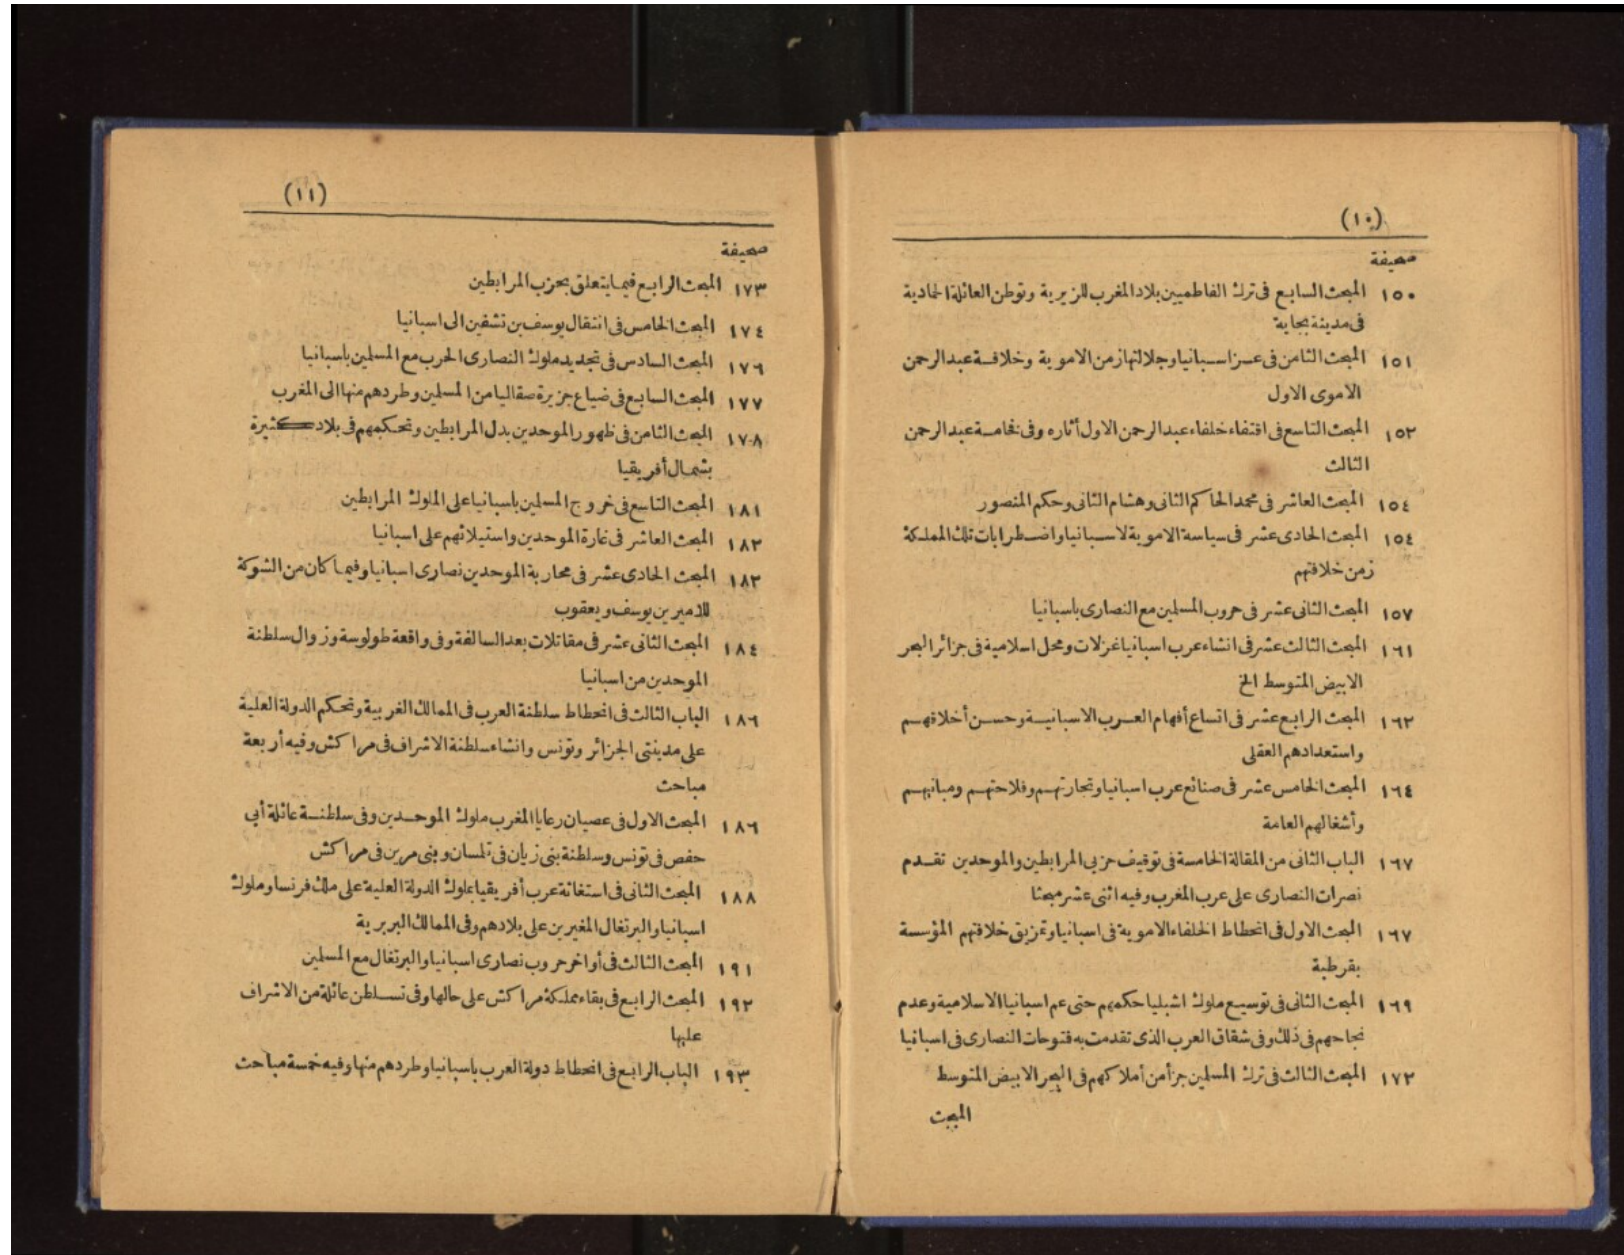 (١٠)
صحيفة
١٥٠ المبحث السابع فى ترك الفاطميين بلاد المغرب للزيرية وتوطن العائلة الحمادية
فى مدينة بجاية
١٥١ المبحث الثامن فى عز اسبانيا وجلالتها زمن الاموية وخلافة عبد الرحمن
الاموى الاول
١٥٢ المبحث التاسع فى اقتفاء خلفاء عبد الرحمن الاول آثاره وفى فخامة عبد الرحمن
الثالث
١٥٤ المبحث العاشر فى محمد الحاكم الثانى وهشام الثانى وحكم المنصور
١٥٤ المبحث الحادى عشر فى سياسة الاموية لاسبانيا واضطرابات تلك المملكة
زمن خلافتهم
١٥٧ المبحث الثانى عشر فى حروب المسلمين مع النصارى باسبانيا
١٦١ المبحث الثالث عشر فى انشاء عرب اسبانيا غزلات ومحل اسلامية فى جزائر البحر
الابيض المتوسط الخ
١٦٢ المبحث الرابع عشر فى اتساع أفهام العرب الاسبانية وحسن أخلاقهم
واستعدادهم العقلى
١٦٤ المبحث الخامس عشر فى صنائع عرب اسبانيا وتجارتهم وفلاحتهم ومبانيهم
وأشغالهم العامة
١٦٧ الباب الثانى من المقالة الخامسة فى توقيف حزبى المرابطين والموحدين تقدم
نصرات النصارى على عرب المغرب وفيه اثنى عشر مبحثا
١٦٧ المبحث الاول فى انحطاط الخلفاء الاموية فى اسبانيا وتمزيق خلافتهم المؤسسة
بقرطبة
١٦٩ المبحث الثانى فى توسيع ملوك اشبليا حكمهم حتى عم اسبانيا الاسلامية وعدم
نجاحهم فى ذلك وفى شقاق العرب الذى تقدمت به فتوحات النصارى فى اسبانيا
١٧٢ المبحث الثالث فى ترك المسلمين جزأ من أملاكهم فى البحر الابيض المتوسط
المبحث
(١١)
صحيفة
١٧٣ المبحث الرابع فيما يتعلق بحزب المرابطين
١٧٤ المبحث الخامس فى انتقال يوسف بن تشفين الى اسبانيا
١٧٦ المبحث السادس فى تجديد ملوك النصارى الحرب مع المسلمين باسبانيا
١٧٧ المبحث السابع فى ضياع جزيرة صقاليا من المسلمين وطردهم منها الى المغرب
١٧٨ المبحث الثامن فى ظهور الموحدين بدل المرابطين وتحكمهم فى بلاد كثيرة
بشمال أفريقيا
١٨١ المبحث التاسع فى خروج المسلمين باسبانيا على الملوك المرابطين
١٨٢ المبحث العاشر فى غارة الموحدين واستيلائهم على اسبانيا
١٨٢ المبحث الحادى عشر فى محاربة الموحدين نصارى اسبانيا وفيما كان من الشوكة
للاميرين يوسف ويعقوب
١٨٤ المبحث الثانى عشر فى مقاتلات بعد السالفة وفى واقعة طولوسة وزوال سلطنة
الموحدين من اسبانيا
١٨٦ الباب الثالث فى انحطاط سلطنة العرب فى الممالك الغربية وتحكم الدولة العلية
على مدينتى الجزائر وتونس وانشاء سلطنة الاشراف فى مراكش وفيه أربعة
مباحث
١٨٦ المبحث الاول فى عصيان رعايا المغرب ملوك الموحدين وفى سلطنة عائلة أبى
حفص فى تونس وسلطنة بنى زيان فى تلمسان وبنى مرين فى مراكش
١٨٨ المبحث الثانى فى استغاثة عرب أفريقيا بملوك الدولة العلية على ملك فرنسا وملوك
اسبانيا والبرتغال المغيرين على بلادهم وفى الممالك البربرية
١٩١ المبحث الثالث فى أواخر حروب نصارى اسبانيا والبرتغال مع المسلمين
١٩٢ المبحث الرابع فى بقاء مملكة مراكش على حالها وفى تسلطن عائلة من الاشراف
عليها
١٩٣ الباب الرابع فى انحطاط دولة العرب باسبانيا وطردهم منها وفيه خمسة مباحث